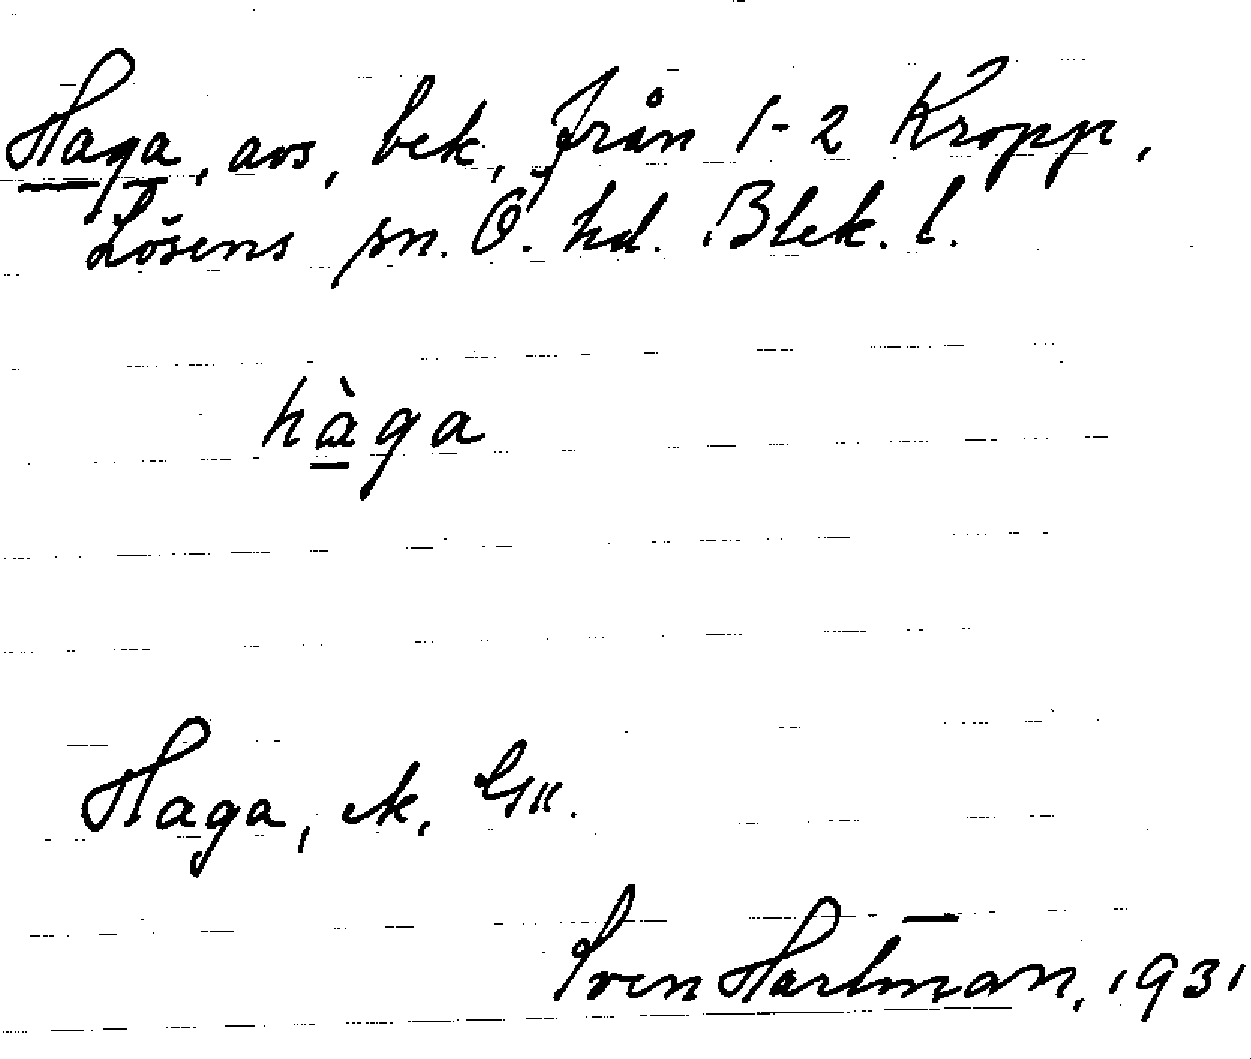 Haga, avs, bek, från 1-2 Kropp,
Lösens sn. Ö. hd. Blek. l.
hàga
Haga, ek, GK.
Sven Hartman, 1931